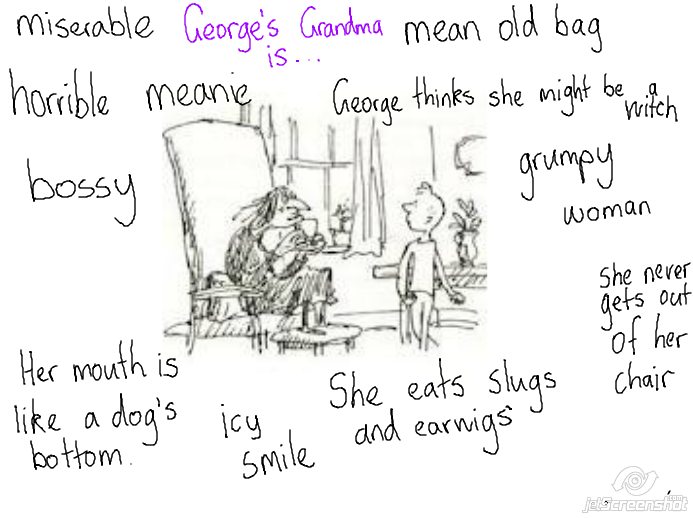 miserable George's Grandma mean old bag
is...
horrible meanie George thinks she might be a
witch
bossy
grumpy
woman
she never
gets out
of her
chair
Her mouth is
like a dog's
bottom.
icy
smile
She eats slugs
and earwigs
jetScreenshot.com